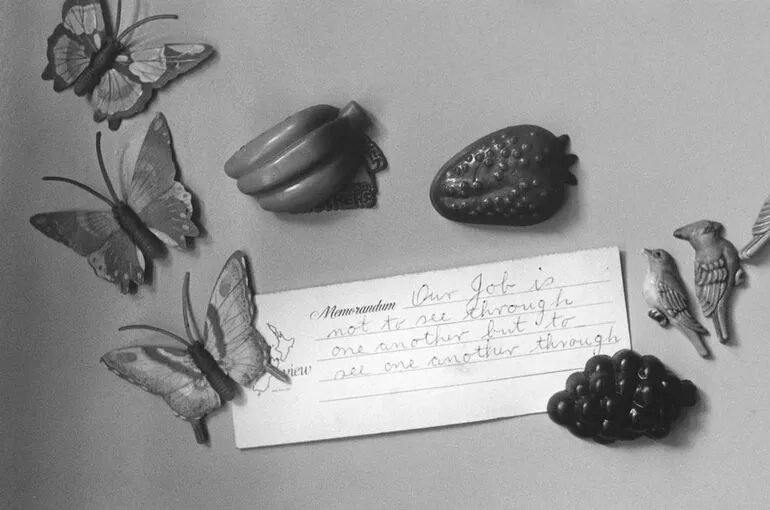 Memorandum Our Job is
not to see through
one another but to
see one another through
view